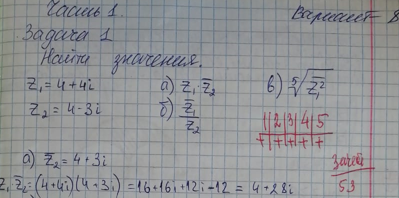 Часть 1. Вариант 8
Задача 1
Найти значения.
z₁ = 4+4i а) z₁·z̄₂ в) ⁵√z̄₁²
z₂ = 4-3i б) z̄₁/z₂
1|2|3|4|5
+|+|+|+|+
а) z̄₂ = 4+3i зачёт
z₁·z̄₂ = (4+4i)(4+3i) = 16+16i+12i-12 = 4+28i 53